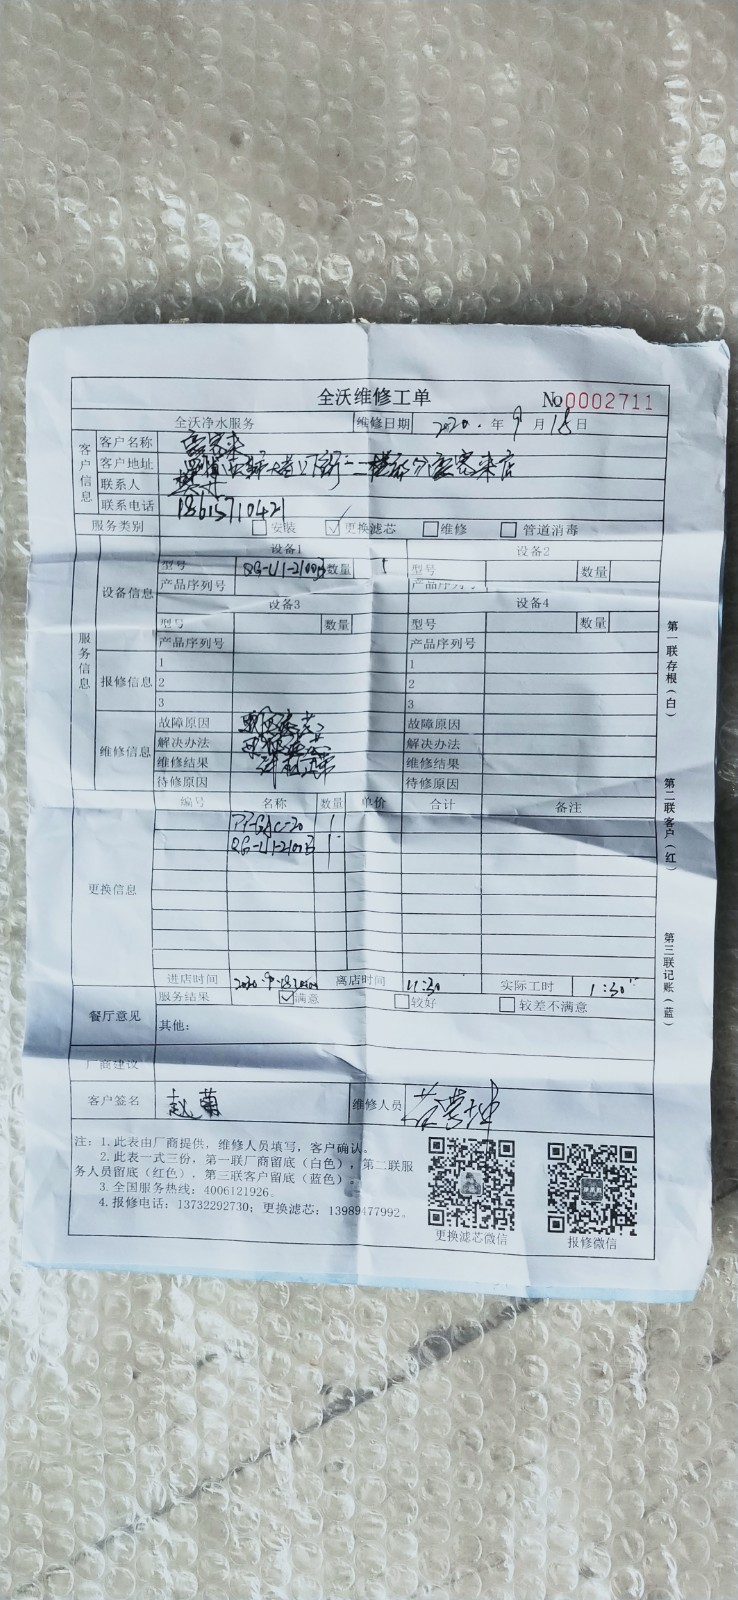 全沃维修工单 No 0002711
全沃净水服务 维修日期 2020. 年 9 月 18 日
客户信息
客户名称
客户地址
联系人
联系电话 18615710421
服务类别 安装 更换滤芯 维修 管道消毒
服务信息
设备信息
设备1 设备2
型号 QG-U1-2100B 数量 1 型号 数量
产品序列号 产品序列号
设备3 设备4
型号 数量 型号 数量
产品序列号 产品序列号
报修信息
1 1
2 2
3 3
维修信息
故障原因 故障原因
解决办法 解决办法
维修结果 维修结果
待修原因 待修原因
更换信息
编号 名称 数量 单价 合计 备注
PP-GAC-20 1
QG-U1-2100B 1
进店时间 2020.9.18 离店时间 11:30 实际工时 1:30
餐厅意见
服务结果 满意 较好 较差不满意
其他:
厂商建议
客户签名 赵菊 维修人员
注: 1.此表由厂商提供, 维修人员填写, 客户确认。
2.此表一式三份, 第一联厂商留底 (白色), 第二联服
务人员留底 (红色), 第三联客户留底 (蓝色)。
3.全国服务热线: 4006121926。
4.报修电话: 13732292730; 更换滤芯: 13989477992。
更换滤芯微信 报修微信
第一联存根(白)
第二联客户(红)
第三联记账(蓝)